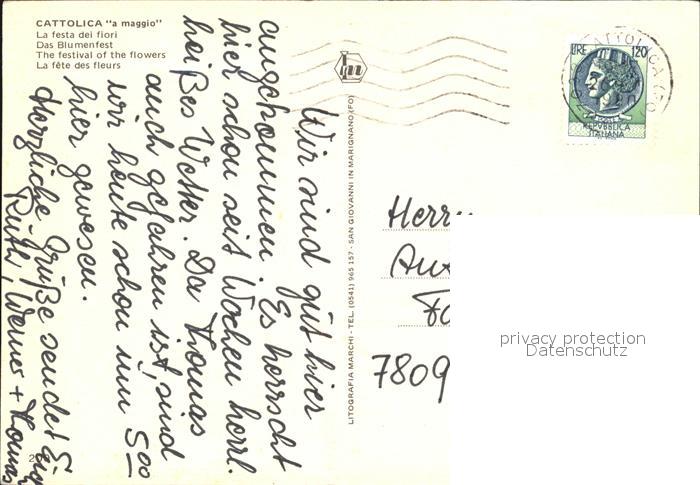 CATTOLICA "a maggio"
La festa dei fiori
Das Blumenfest
The festival of the flowers
La fête des fleurs
Wir sind gut hier
angekommen. Es herrscht
hier schon seit Wochen herrl.
heißes Wetter. Da Thomas
auch gefahren ist, sind
wir heute schon um 5 00
hier gewesen.
Herzliche Grüße sendet E.
Ruth, Werner + Thomas
LITOGRAFIA MARCHI - TEL. (0541) 965 157 - SAN GIOVANNI IN MARIGNANO (FO)
LIRE 120
REPVBBLICA
ITALIANA
CATTOLICA (FO)
Herrn
7809
privacy protection
Datenschutz